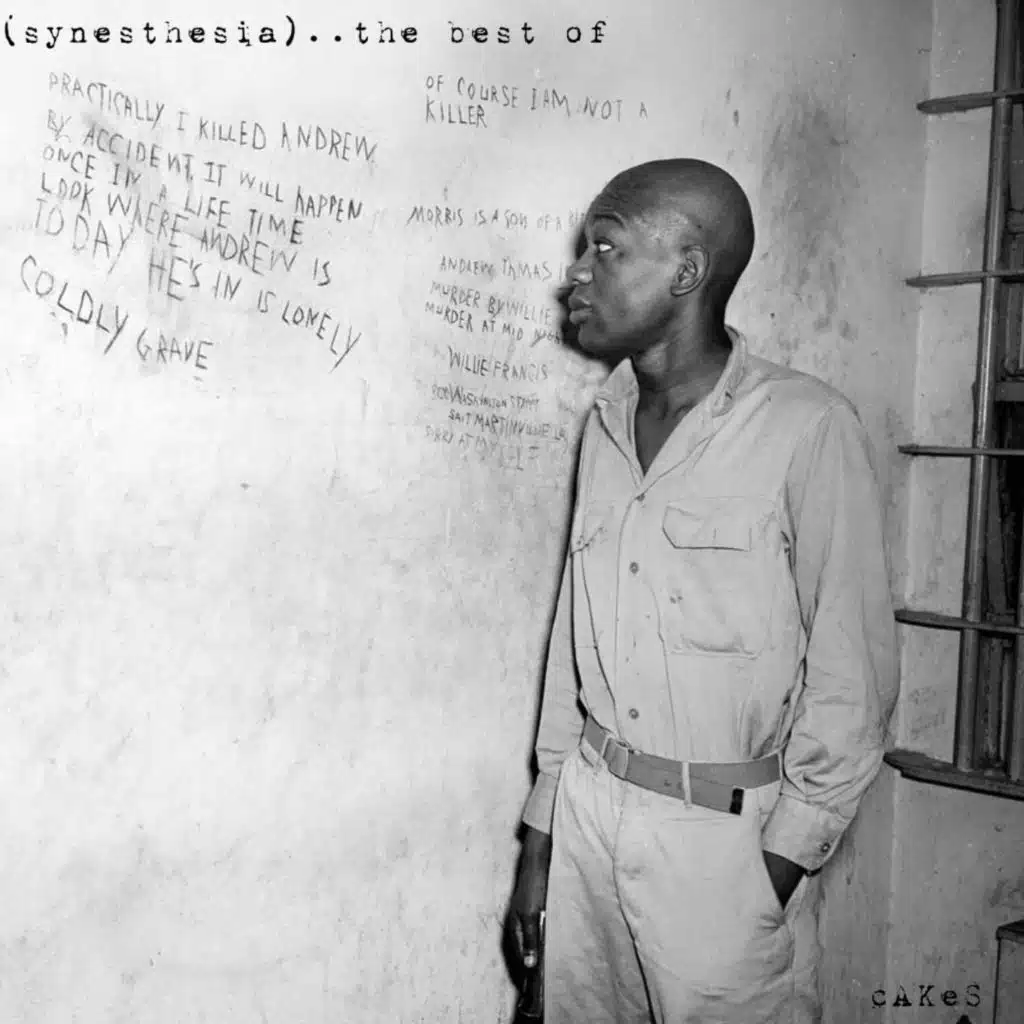 (synesthesia)..the best of
PRACTICALLY I KILLED ANDREW
BY ACCIDENT IT WILL HAPPEN
ONCE IN A LIFE TIME
LOOK WHERE ANDREW IS
TO DAY HE'S IN IS LONELY
COLDLY GRAVE
OF COURSE I AM NOT A
KILLER
MORRIS IS A SON OF A
ANDREW
MURDER BY WILLIE
MURDER AT MID
WILLIE FRANCIS
WASHINGTON
SAIT MARTINVILLE LA
AT
cAKeS